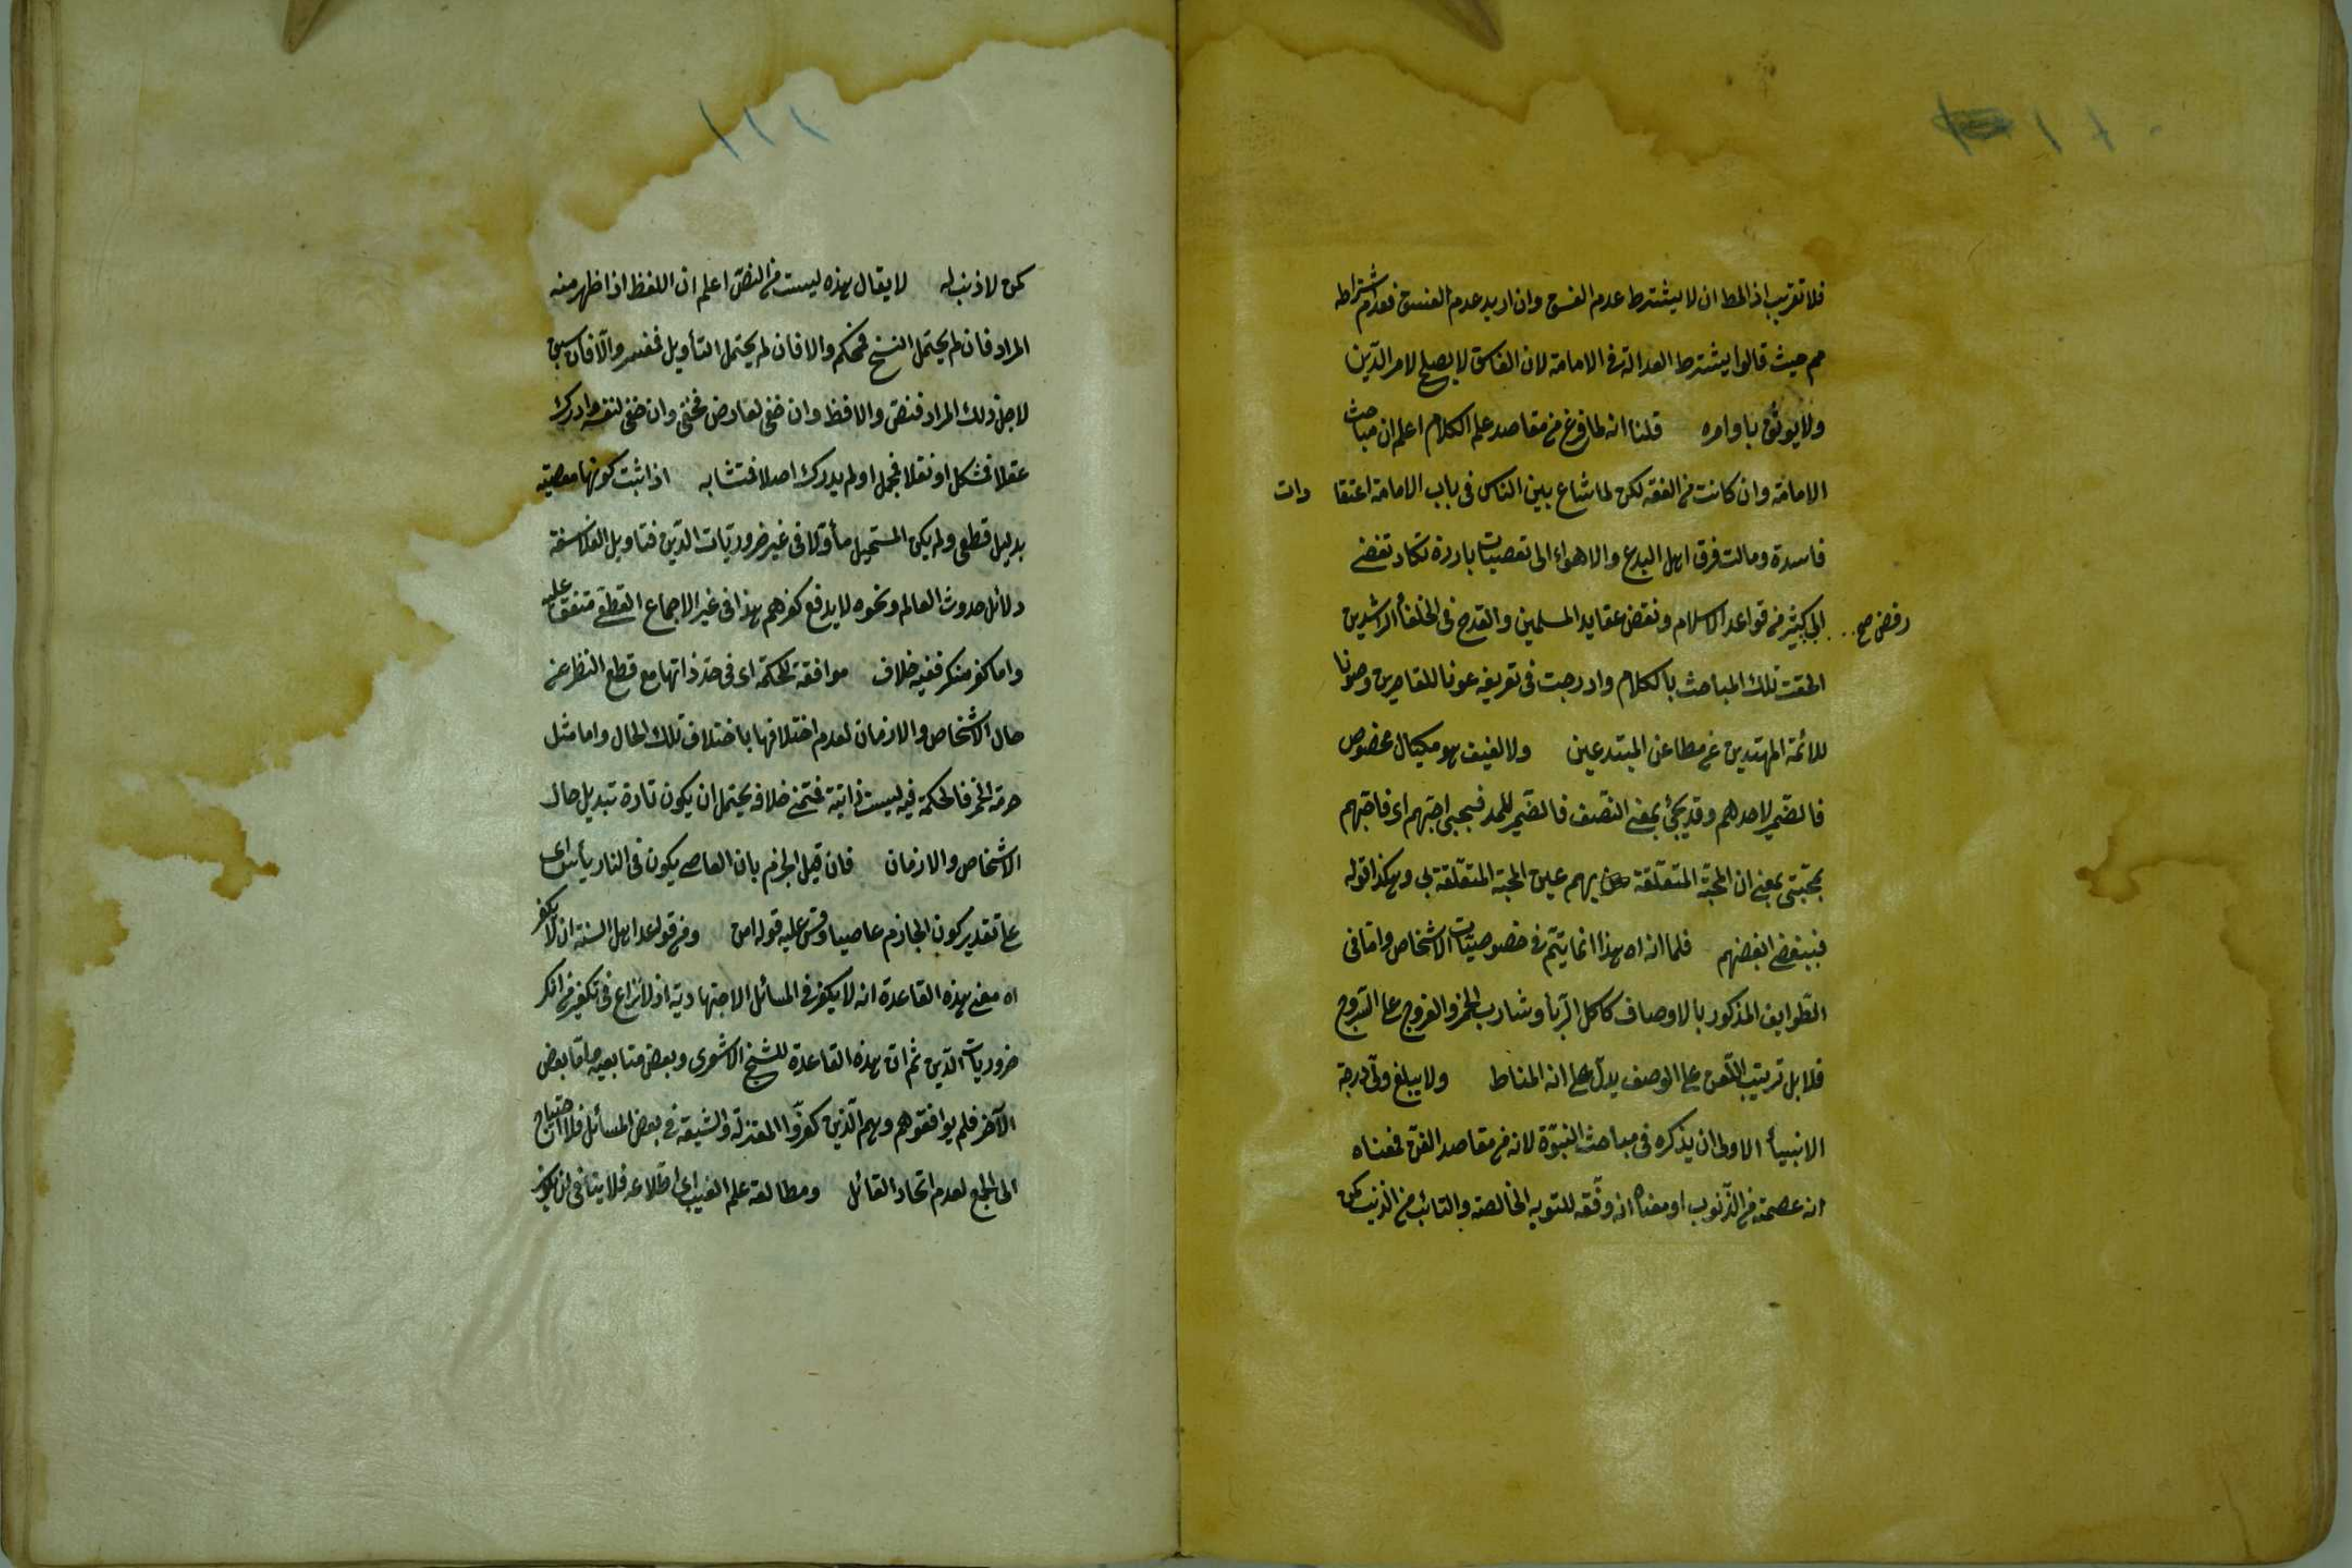 ١١٠
فلا تقريب اذ المط ان لا يشترط عدم الفسق وان اريد عدم الفسق فعدم اشتراطه
مم حيث قالوا يشترط العدالة في الامامة لان الفاسق لا يصلح لامر الدّين
ولا يوثق باوامره قلنا انه لما فرغ من مقاصد علم الكلام اعلم ان مباحث
الامامة وان كانت من الفقه لكن لما شاع بين الناس في باب الامامة اعتقا دات
فاسدة ومالت فرق اهل البدع والاهواء الى تعصبات باردة تكاد تفضى
الى كثير من قواعد الاسلام ونقض عقايد المسلمين والقدح في الخلفأ الراشدين
رفض صح
الحقت تلك المباحث بالكلام وادرجت في تعريفه عونا للقاصرين وصونا
للائمة المهتدين عن مطاعن المبتدعين ولا نصيف هو مكيال مخصوص
فالضمير لاحدهم وقد يجئ بمعنى النّصف فالضمير للمد فبحبى احبّهم اى فاحبّهم
بمحبّتى بمعنى ان المحبّة المتعلّقة بهم عين المحبة المتعلّقة بى وهكذا قوله
فببغضى ابغضهم فلما انه اه هذا انما يتمّ في خصوصيّات الاشخاص وامّا في
الطّوايف المذكور بالاوصاف كاكل الرّبأ وشارب الخمر والفروج على السّروج
فلا بل ترتيب اللّعن على الوصف يدلّ على انه المناط ولا يبلغ ولىّ درجة
الانبيأ الاولى ان يذكره في مباحث النبوّة لانه من مقاصد الفن فمعناه
انه عصمه من الذّنوب او معناه انه وفّقه للتوبه الخالصة والتائب من الذنب كمن
١١١
كمن لا ذنب له لا يقال هذه ليست من النصّ اعلم ان اللفظ اذا ظهر منه
المراد فان لم يحتمل النسخ فمحكم والا فان لم يحتمل التأويل فمفسر والّا فان سيق
لاجل ذلك المراد فنصّ والا فظ وان خفى لعارض فخفى وان خفى لنفسه وادرك
عقلا فمشكل او نقلا فمجمل او لم يدرك اصلا فمتشابه اذا ثبت كونها معصية
بدليل قطعى ولم يكن المستحيل مأوّلا في غير ضروريّات الدّين فتاويل الفلاسفة
دلائل حدوث العالم ونحوه لا يدفع كفرهم هذا في غير الاجماع القطعى متفق عليه
واما كفر منكره ففيه خلاف موافقة للحكمة اى في حدّ ذاتها مع قطع النظر عن
حال الاشخاص والازمان لعدم اختلافها باختلاف تلك الحال واما مثل
حرمة الخمر فالحكمة فيه ليست ذاتية فتمنى خلافه يحتمل ان يكون تارة تبديل حال
الاشخاص والازمان فان قيل الجزم بان العاصى يكون في النار يأس اى
على تقدير كون الجازم عاصيا وقس عليه قوله امن ومن قواعد اهل السنة ان لا يكفر
اه معنى هذه القاعدة انه لا يكفر في المسائل الاجتهادية اذ لا نزاع في تكفير من انكر
ضروريات الدّين ثم ان هذه القاعدة للشيخ الاشعرى وبعض متابعيه وامّا بعض
الآخر فلم يوافقوهم وهم الّذين كفّروا المعتزلة والشيعة في بعض المسائل فلا احتياج
الى الجمع لعدم اتحاد القائل ومطالعة علم الغيب اى اطّلاعه فلا ينافى ان يكون